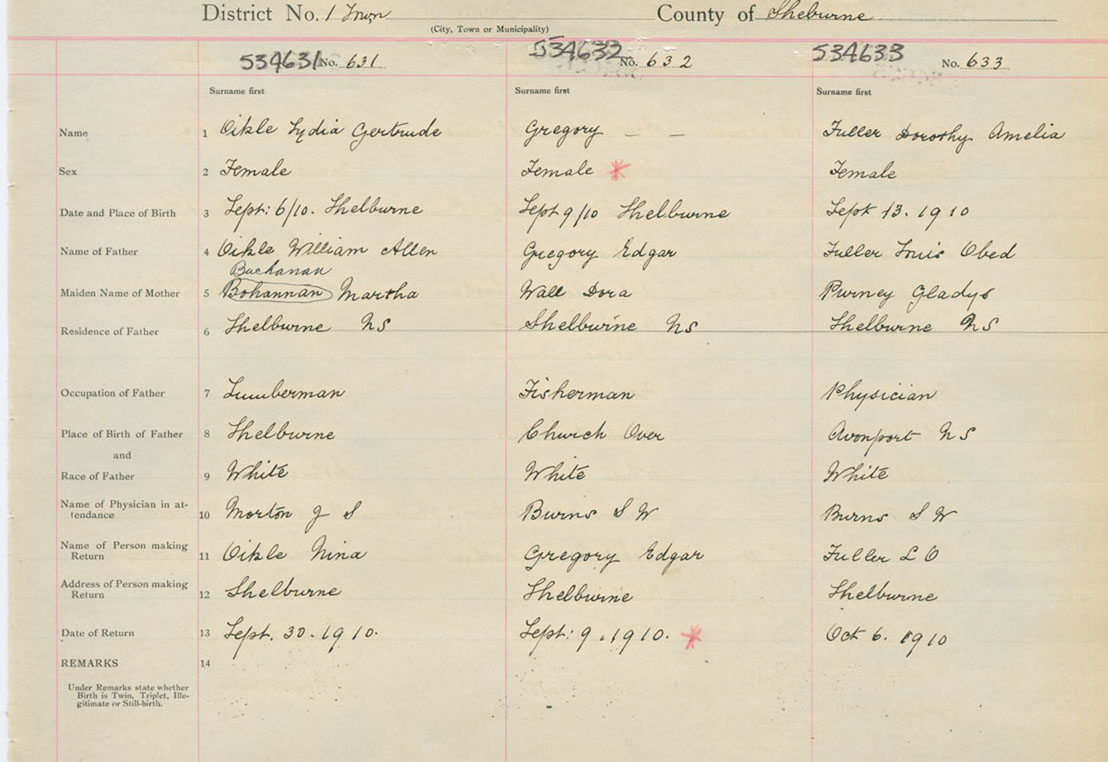 District No. 1 Town County of Shelburne
(City, Town or Municipality)
534631 No. 631 534632 No. 632 534633 No. 633
Surname first Surname first Surname first
Name 1 Oikle Lydia Gertrude Gregory — — Fuller Dorothy Amelia
Sex 2 Female Female * Female
Date and Place of Birth 3 Sept: 6/10. Shelburne Sept 9/10 Shelburne Sept 13. 1910
Name of Father 4 Oikle William Allen Gregory Edgar Fuller Louis Obed
Buchanan
Maiden Name of Mother 5 Bohannan Martha Wall Dora Purney Gladys
Residence of Father 6 Shelburne NS Shelburne NS Shelburne NS
Occupation of Father 7 Lumberman Fisherman Physician
Place of Birth of Father 8 Shelburne Church Over Avonport NS
and
Race of Father 9 White White White
Name of Physician in at-
tendance 10 Morton J S Burns S W Burns S W
Name of Person making
Return 11 Oikle Nina Gregory Edgar Fuller L O
Address of Person making
Return 12 Shelburne Shelburne Shelburne
Date of Return 13 Sept. 30. 1910. Sept: 9. 1910. * Oct 6. 1910
REMARKS 14
Under Remarks state whether
Birth is Twin, Triplet, Ille-
gitimate or Still-birth.